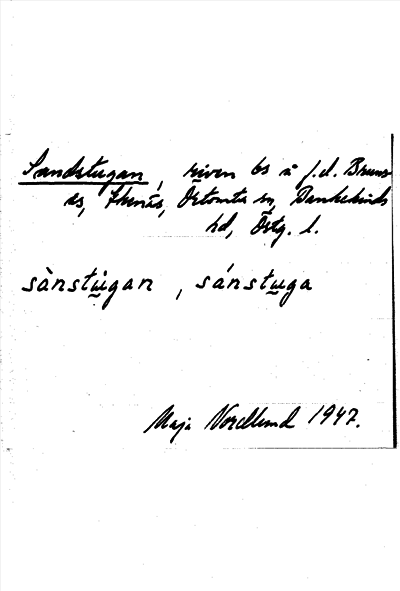 Sandstugan, riven bs å f.d. Bruns-
äs, Ekenäs, Östomta sn, Bankekinds
hd, Östg. l.
sànstu̱gan , sánstu̱ga
Maja Nordlund 1947.